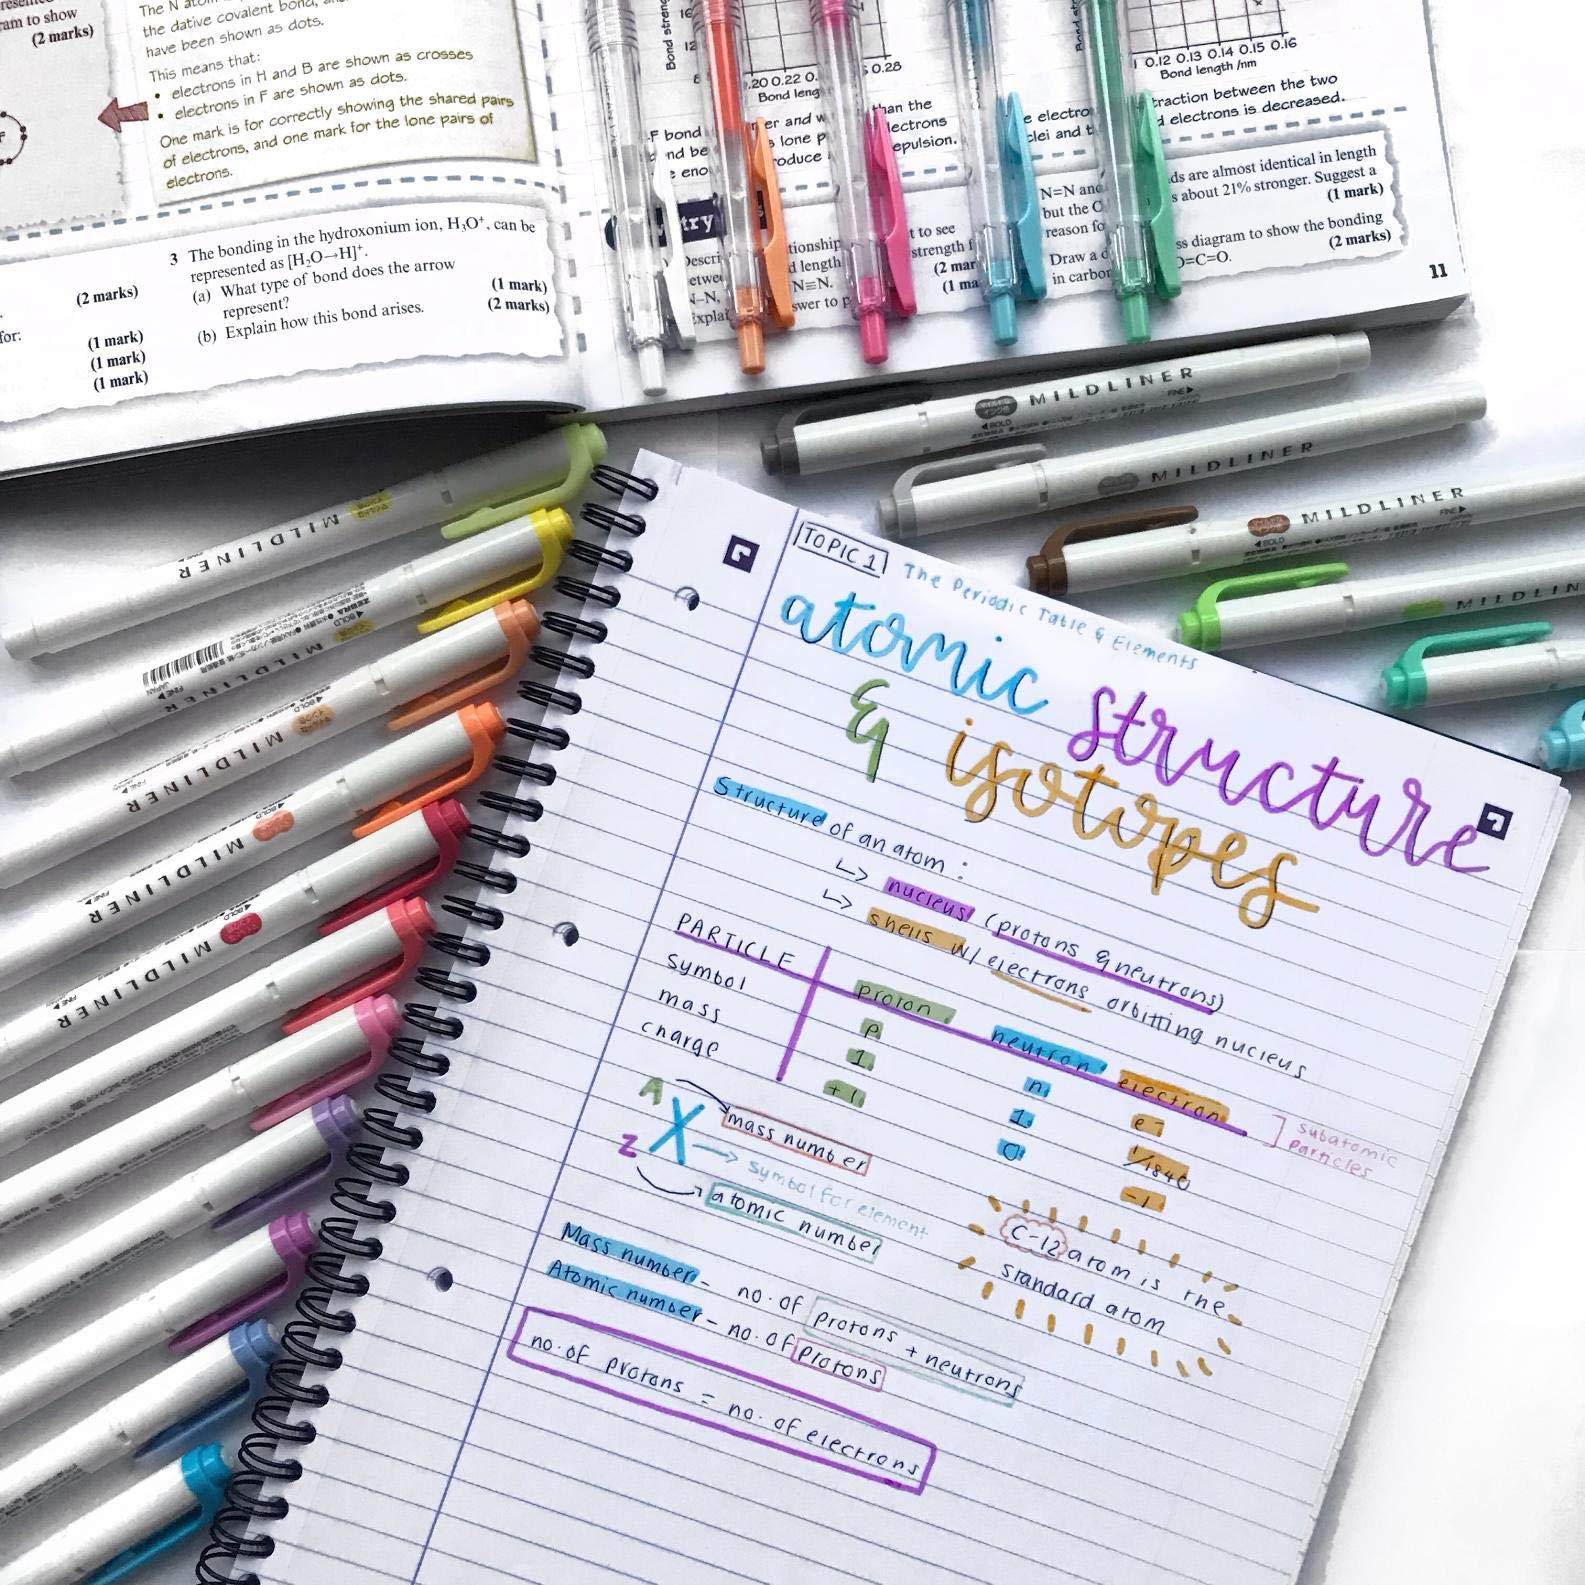 ram to show
(2 marks)
The N atom
the dative covalent bond,
have been shown as dots.
This means that:
• electrons in H and B are shown as crosses
• electrons in F are shown as dots.
One mark is for correctly showing the shared pairs
of electrons, and one mark for the lone pairs of
electrons.
(2 marks)
for:
(1 mark)
(1 mark)
(1 mark)
3 The bonding in the hydroxonium ion, H₃O⁺, can be
represented as [H₂O→H]⁺.
(a) What type of bond does the arrow
represent?
(1 mark)
(b) Explain how this bond arises.
(2 marks)
Bond
16
12
8
.20 0.22 0.
0.28
Bond
0.12 0.13 0.14 0.15 0.16
Bond length /nm
F bond
er and
than the
lone
electrons
repulsion.
electro
traction between the two
and
d electrons is decreased.
try
t to see
length
strength
N≡N.
(2 mar
(1 ma
N=N and
ds are almost identical in length
but the C
about 21% stronger. Suggest a
reason fo
(1 mark)
Draw a
ss diagram to show the bonding
in carbon
O=C=O.
(2 marks)
11
MILDLINER
BOLD
FINE
MILDLINER
MILDLINER
BOLD
FINE
MILDLIN
MILDLINER
FINE
ZEBRA
BOLD
JAPAN
FINE
MILDLINER
BOLD
MILDLINER
BOLD
MILDLINER
FINE
BOLD
MILDLINER
TOPIC 1
The Periodic Table & Elements
atomic structure
& isotopes
Structure of an atom :
↳ nucleus (protons & neutrons)
↳ shells w/ electrons orbitting nucleus
PARTICLE proton neutron electron
symbol p n e-
mass 1 1 1/1840
charge +1 0 -1
subatomic
particles
A
X
Z
mass number
symbol for element
atomic number
C-12 atom is the
standard atom
Mass number - no. of protons + neutrons
Atomic number - no. of protons
no. of protons = no. of electrons